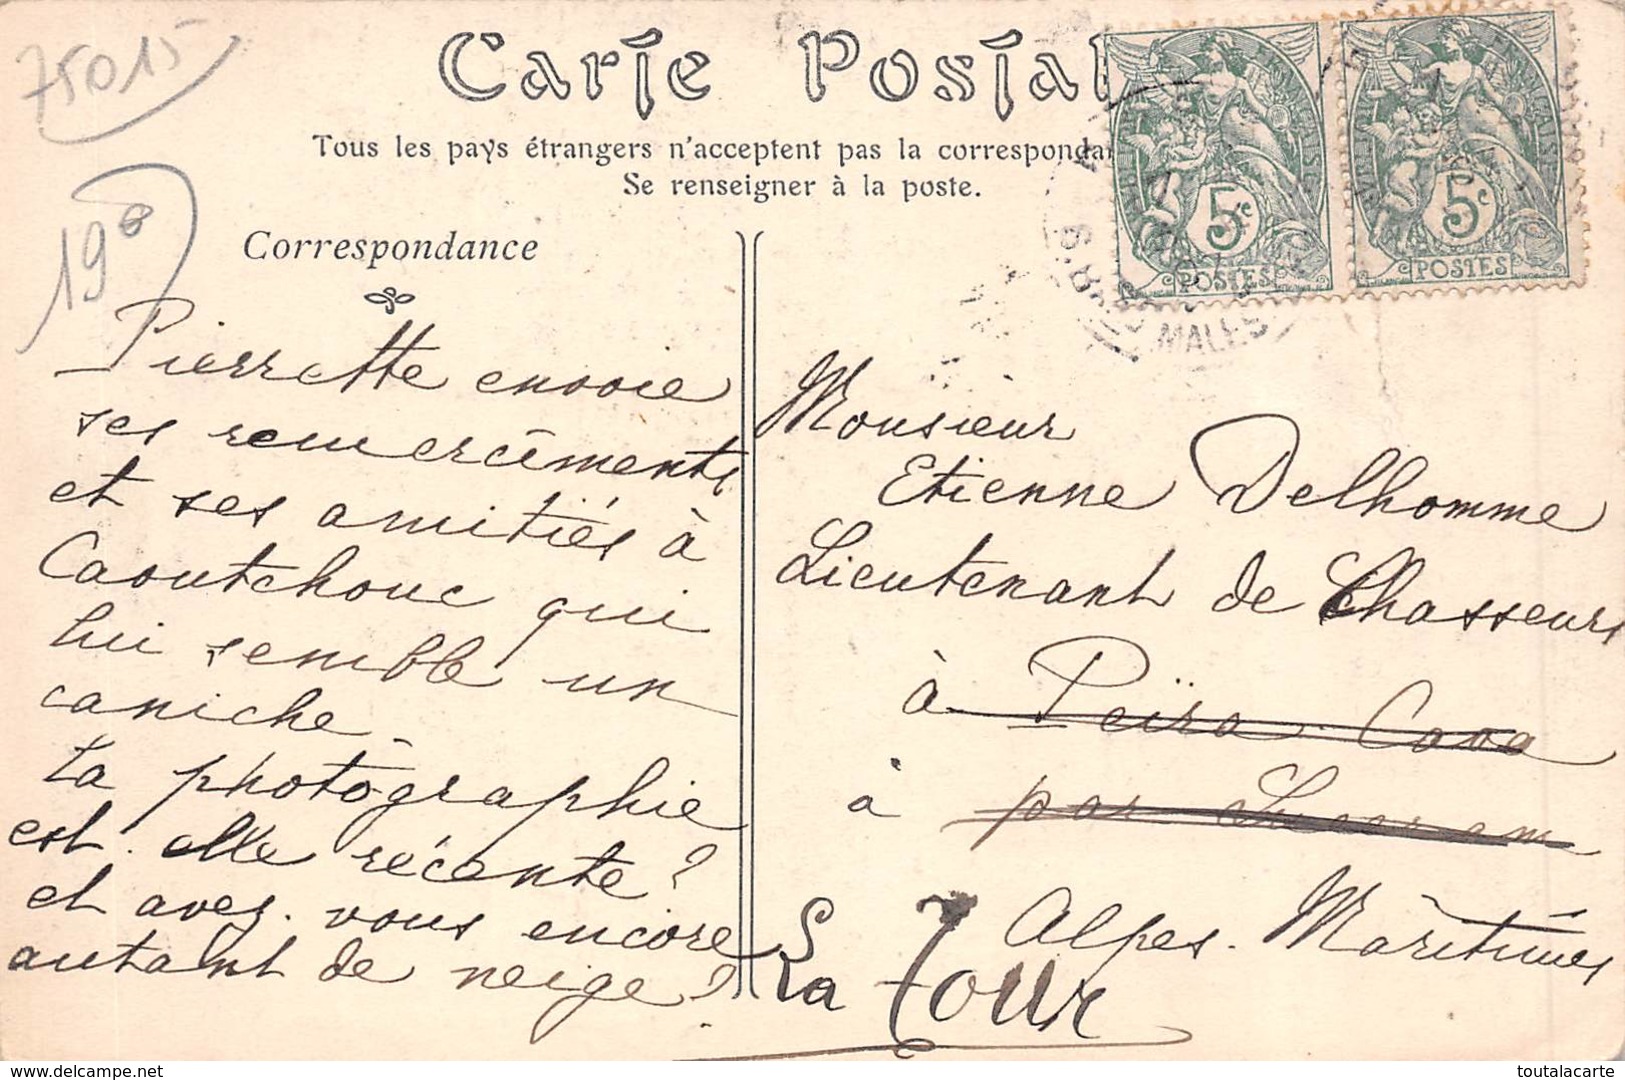 75015
19e
Carte Postal
Tous les pays étrangers n'acceptent pas la correspondan
Se renseigner à la poste.
Correspondance
Pierrette envoie
ses remerciments
et ses amitiés à
Caoutchouc qui
lui semble un
caniche.
ta photographie
est-elle récente?
et avez-vous encore
autant de neige?
5c
POSTES
5c
POSTES
MALES
Monsieur
Etienne Delhomme
Lieutenant de Chasseurs
à Peïra-Cava
à par Lucéram
Alpes-Maritimes
La Tour
toutalacarte